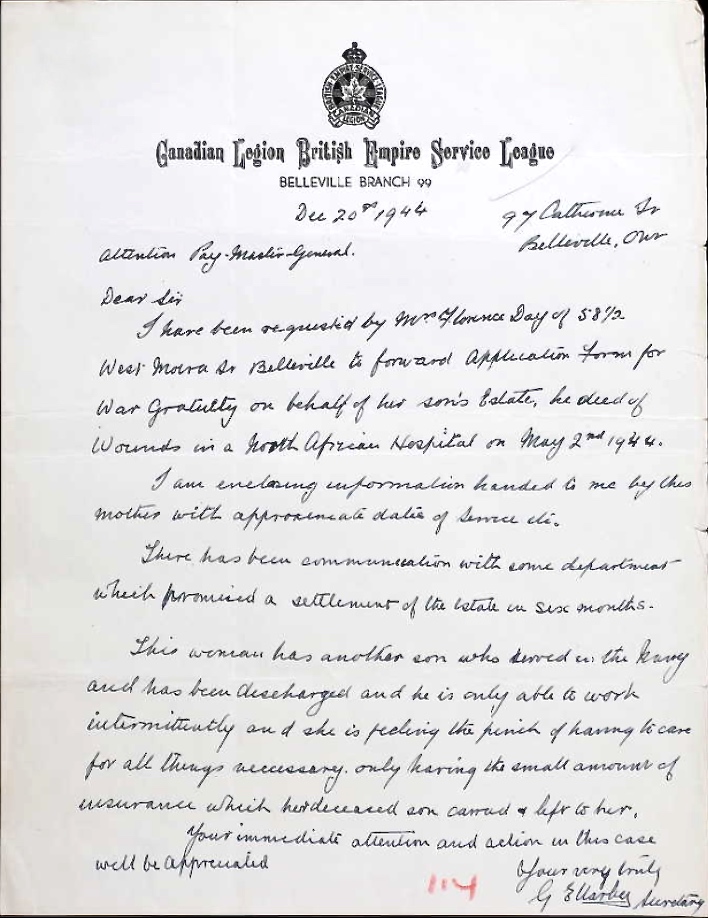 BRITISH EMPIRE SERVICE LEAGUE
CANADIAN
LEGION
Canadian Legion British Empire Service League
BELLEVILLE BRANCH 99
Dec 20th 1944
97 Catherine St
Belleville, Ont
Attention Pay-Master-General.
Dear Sir
I have been requested by Mrs Florence Day of 58½
West Moira St Belleville to forward Application Form for
War Gratuity on behalf of her son's Estate, he died of
Wounds in a North African Hospital on May 2nd 1944.
I am enclosing information handed to me by this
mother with approximate dates of Service etc.
There has been communication with some department
which promised a settlement of the Estate in six months.
This woman has another son who served in the Navy
and has been discharged and he is only able to work
intermittently and she is feeling the pinch of having to care
for all things neccessary. only having the small amount of
insurance which her deceased son carried & left to her.
Your immediate attention and action in this case
will be appreciated
Yours very truly
G E
Secretary
114